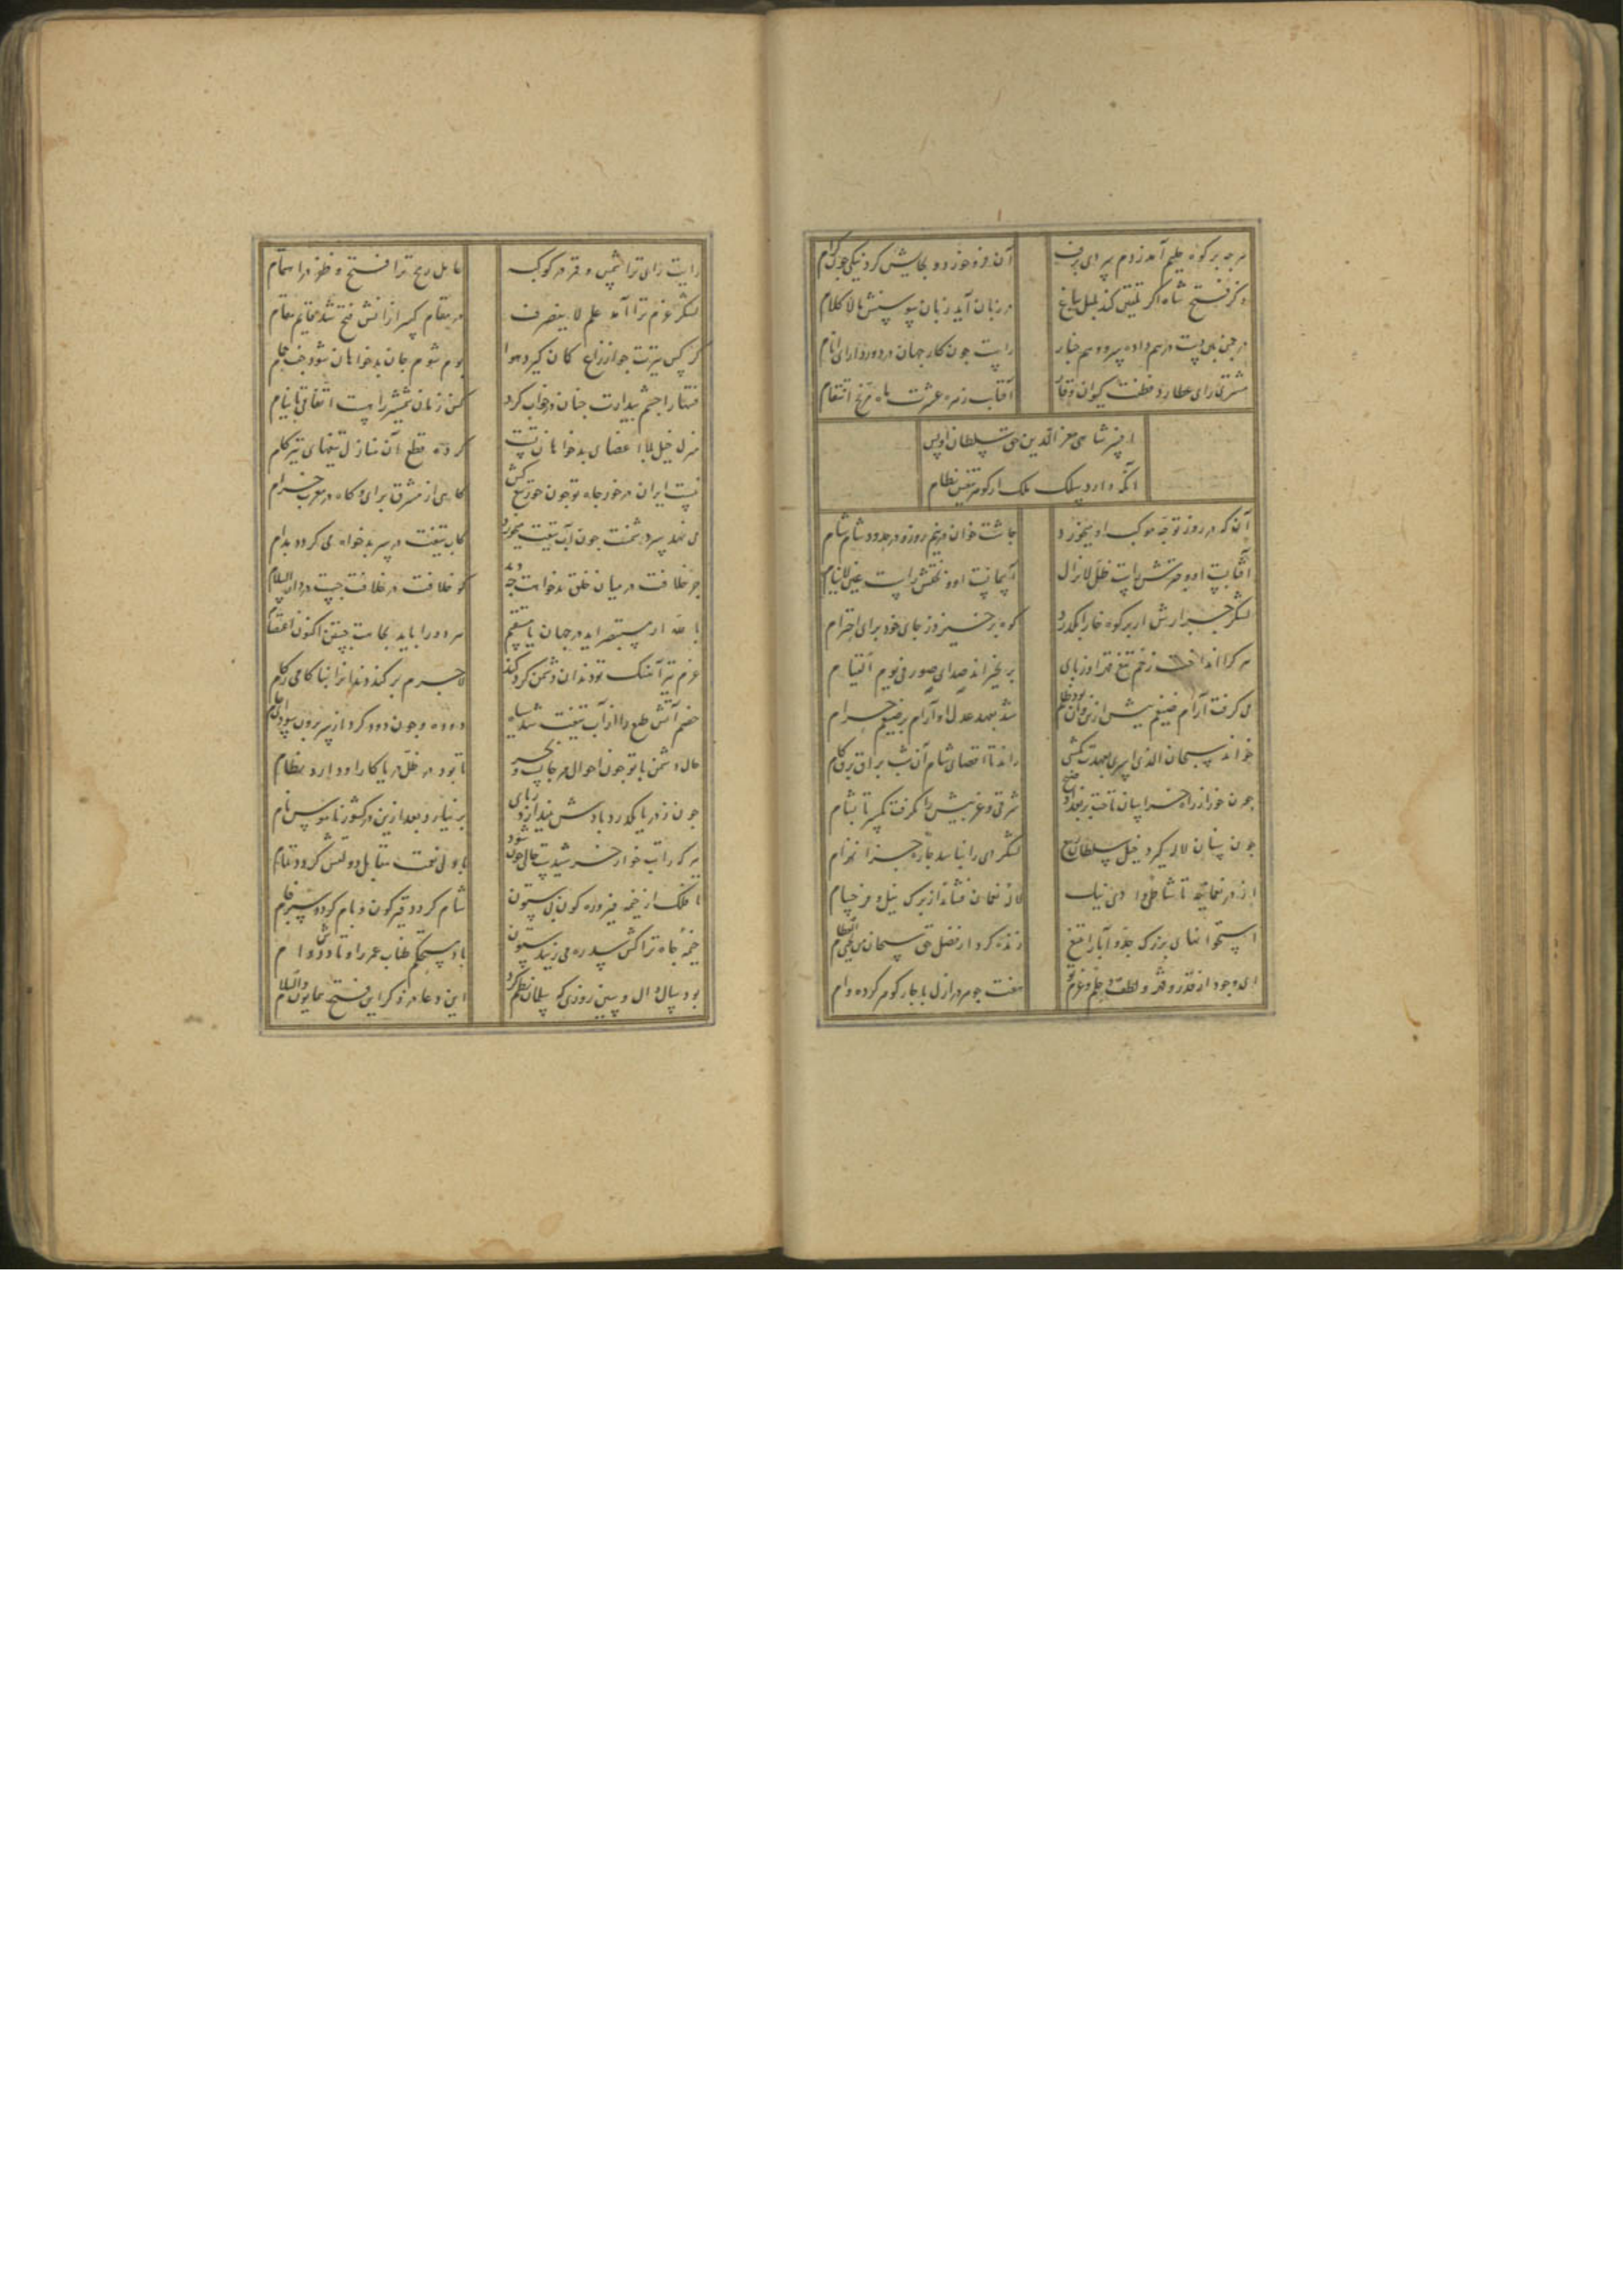 هر چه بر کوه حلیم آید ز دم سردی برف
آن فرو خورد و بجایش کرد نیکی چون کرام
ذکر فتح شاه اگر تلقین کند بلبل بباغ
در زبان آید زبان سوسنش بالا کلام
در چمن
راست چون کار جهان در دور دارای انام
مشتری رای عطارد فطنت کیوان وقار
آفتاب زهره عشرت ماه مریخ انتقام
افسر شاهی معز الدین حق سلطان اویس
آنکه دارد سلک ملک از گوهر تیغش نظام
آن که در روز توجه موکب او میخورد
چاشت خوان در نیم روز و در حدود شام شام
آفتابست او و چترش راست ظل لایزال
آسمانست او و تختش راست عین لاینام
لشکر جرارش ار بر کوه خارا بگذرد
کوه برخیزد ز جای خود برای احترام
هر کرا انداخت زخم تیغ قهر او ز پای
بر نخیزاند صدای صور فی یوم القیام
می گرفت آرام ضیغم پیش ازین
شد بعهد عدل او آرام بر ضیغم حرام
خواند سبحان الذی اسری بعهدت
راند تا اقصای شام آن شب براق برق کام
چون خور از راه خراسان تاخت بر بغداد صبح
شرقی و غربیش را بگرفت یکسر تا بشام
چون سنان لاله گیرد خیل سلطان ربیع
لشکر دی را نباشد چاره جز انهزام
از در نعمانیه تا شاطی وادی نیک
لاله نعمان فشاند از برگ نیل و هر خیام
استخوانهای بزرگ جد و آبا را تیغ
زنده کرد از فضل حق سبحان من یحیی العظام
ای وجود از قدر و قهر و لطف و حلم و عزم تو
هفت جوهر در ازل با چار گوهر کرده وام
رایت رای ترا شمس و قمر در کوکبه
عامل رمح ترا فتح و ظفر در اهتمام
لشکر عزم ترا آمد علم لا ینصرف
در مقام کسر از آنش فتح شد قایم مقام
کرکس تیرت چو از زاغ کمان گیرد هوا
بوم شوم جان بدخواهان شود جفت حمام
فتنه را چشم بیدارت چنان در خواب کرد
کش زبان شمشیر راست اتفاقی با نیام
منزل خیل بلا اعضای بدخواهان تست
کرده قطع آن منازل تیغهای تیز گام
نیست ایران در خور جاه تو چون خور تیغ کش
گاهی از مشرق برای و گاه در مغرب خرام
می نهد سر دشمنت چون آب تیغت میخورد
کاب تیغت در سر بدخواه می گردد مدام
جز خلافت در میان خلق بدخواهت چه دید
کو خلافت در خلافت جست در دار السلام
با الله ار مستنصر آید در جهان یا معتصم
هر دو را باید بجانت جستن اکنون اعتصام
عزم تیز آهنگ تو دندان دشمن کرد کند
لاجرم بر کند دندانرا بناکامی ز کام
خصم آتش طبع را از آب تیغت شد سیاه
دوده و چون دود کرد از سر برون سودای خام
حال دشمن با تو چون احوال بحر
تا بود در ظل دریا کار او دارد نظام
چون ز دریا بگذرد بادش بیندازد ز پای
بر نیارد بعد ازین در کشور ناموس نام
هر که را تب خوار خورشیدت حالی چون شود
با ولی نعمت مقابل دولتش گردد تمام
تا فلک از خیمه فیروزه گون بی ستون
شام گردد قیرگون و بام گردد سبز فام
خیمه جاه ترا کش سدره می زیبد ستون
باد مستحکم طناب عمر و اوتادش دوام
بود سال ذال و سین روزی که سلمان نظم کرد
این دعا در ذکر این فتح همایون والسلام